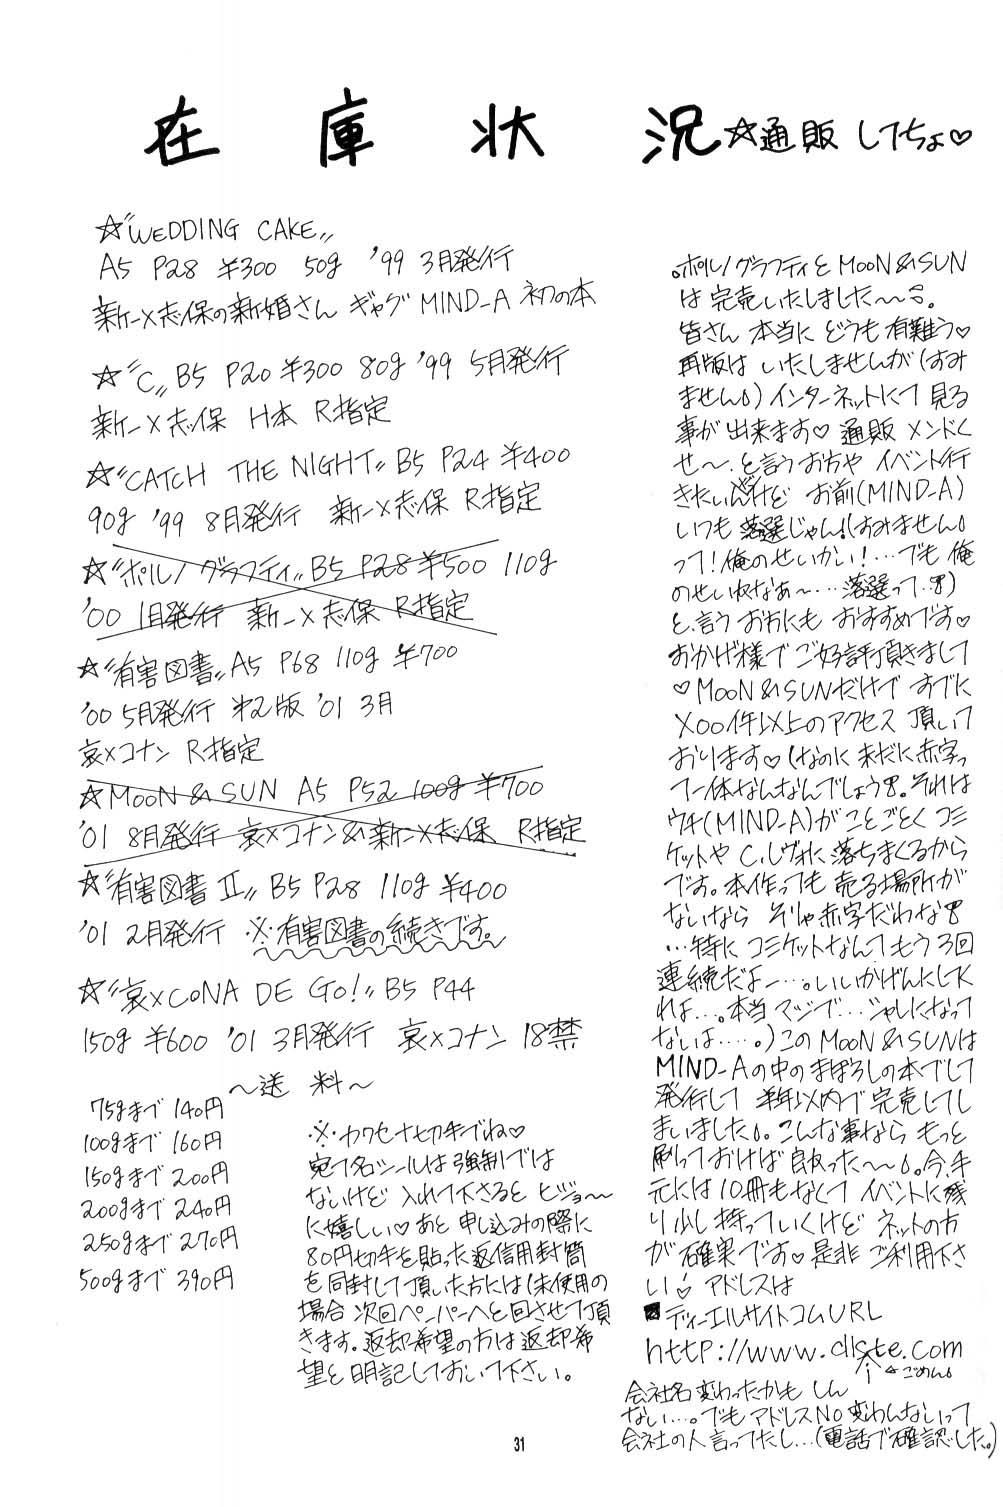 在庫状況 ☆通販 してちょ♡
☆〝WEDDING CAKE〟
A5 P28 ¥300 50g '99 3月発行
新一×志保の新婚さん ギャグ MIND_A 初の本
☆〝C〟B5 P20 ¥300 80g '99 5月発行
新一×志保 H本 R指定
☆〝CATCH THE NIGHT〟B5 P24 ¥400
90g '99 8月発行 新一×志保 R指定
☆〝ポルノグラフティ〟B5 P28 ¥500 110g
'00 1月発行 新一×志保 R指定
☆〝有害図書〟A5 P68 110g ¥700
'00 5月発行 第2版 '01 3月
哀×コナン R指定
☆MOON&SUN A5 P52 100g ¥700
'01 8月発行 哀×コナン&新一×志保 R指定
☆〝有害図書 II〟B5 P28 110g ¥400
'01 2月発行 ※有害図書の続きです。
☆〝哀×CONA DE GO!〟B5 P44
150g ¥600 '01 3月発行 哀×コナン 18禁
〜送料〜
75gまで 140円
100gまで 160円
150gまで 200円
200gまで 240円
250gまで 270円
500gまで 390円
※カワセか切手でね♡
宛て名シールは強制では
ないけど 入れて下さると ヒジョ〜
に嬉しい♡あと 申し込みの際に
80円切手を貼った返信用封筒
を同封して頂いた方には(未使用の
場合 次回ペーパーへと回させて頂
きます。返却希望の方は返却希
望と明記しておいて下さい。
。ポルノグラフティとMOON&SUN
は 完売いたしました〜。
皆さん 本当に どうも 有難う♡
再版は いたしませんが(すみ
ません)インターネットにて 見る
事が 出来ます♡ 通販 メンドく
せ〜.と言うお方や イベント行
きたいんだけど お前(MIND_A)
いつも 落選じゃん!(すみません
って!俺のせいかい!…でも 俺
のせいねなぁ〜……落選って…)
と、言う お方にも おすすめです♡
おかげ様で ご好評頂きまして
♡MOON&SUNだけで すでに
×00件以上のアクセス 頂いて
おります♡(なのに 未だに赤字っ
て一体なんなんでしょう。それは
ウチ(MIND_A)が ことごとく コミ
ケットや C.レヴォに 落ちまくるから
です。本作っても 売る場所が
ないなら そりゃ赤字だわな
…特に コミケットなんて もう3回
連続だよー…。いいかげんにしてく
れよ…。本当 マジで…シャレになって
ないは……。)このMOON&SUNは
MIND_Aの中の まぼろしの本でして
発行して 半年以内で 完売してし
まいました。こんな事なら もっと
刷っておけば 良かった〜。今、手
元には 10冊もなくて イベントに残
り少し 持っていくけど ネットの方
が 確実です♡ 是非 ご利用下さ
い アドレスは
■ディーエルサイトコムURL
http://www.dlsite.com
←ごめん
会社名 変わったかも しん
ない…。でも アドレスNO 変わんないって
会社の人 言ってたし…(電話で確認した。)
31